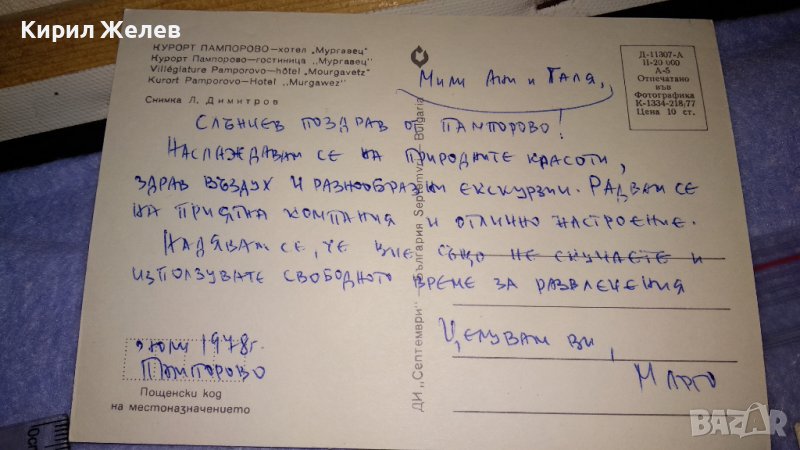 Кирил Желев
КУРОРТ ПАМПОРОВО—хотел „Мургавец"
Курорт Пампорово—гостиница „Мургавец"
Villégiature Pamporovo—hôtel „Mourgavetz"
Kurort Pamporovo—Hotel „Murgawez"
Снимка Л. Димитров
Д-11307-А
II-20 000
А-5
Отпечатано
във
Фотографика
К-1334-218,77
Цена 10 ст.
Мили Ани и Галя,
Слънчев поздрав от Пампорово!
Наслаждавам се на природните красоти,
здрав въздух и разнообразни екскурзии. Радвам се
на приятна компания и отлично настроение.
Надявам се, че вие също не скучаете и
използувате свободното време за развлечения
Целувам ви,
Марго
юли 1978г.
Пампорово
Пощенски код
на местоназначението
ДИ „Септември" — България Septemvri — Bulgaria
BAZAR